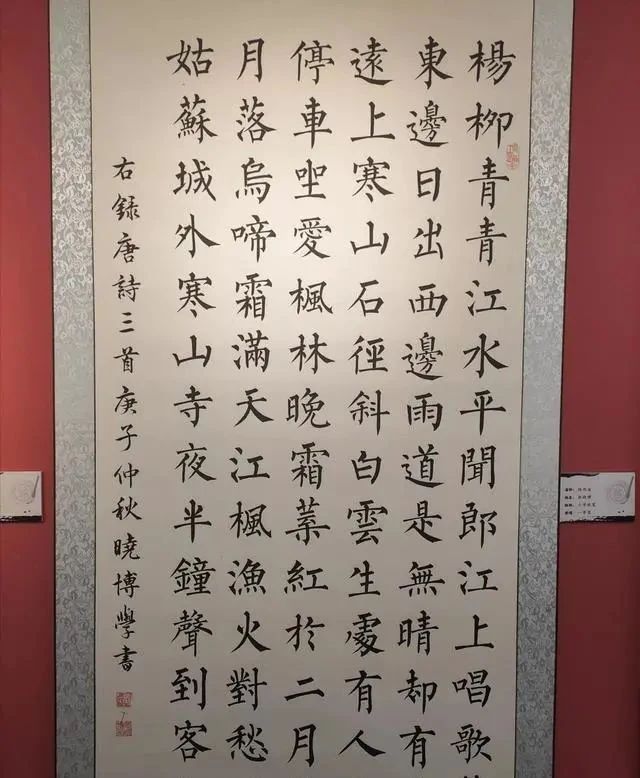 楊栁青青江水平聞郎江上唱歌
東邊日出西邊雨道是無晴却有
遠上寒山石徑斜白雲生處有人
停車坐愛楓林晚霜葉紅於二月
月落烏啼霜滿天江楓漁火對愁
姑蘇城外寒山寺夜半鐘聲到客
右録唐詩三首庚子仲秋曉博學書